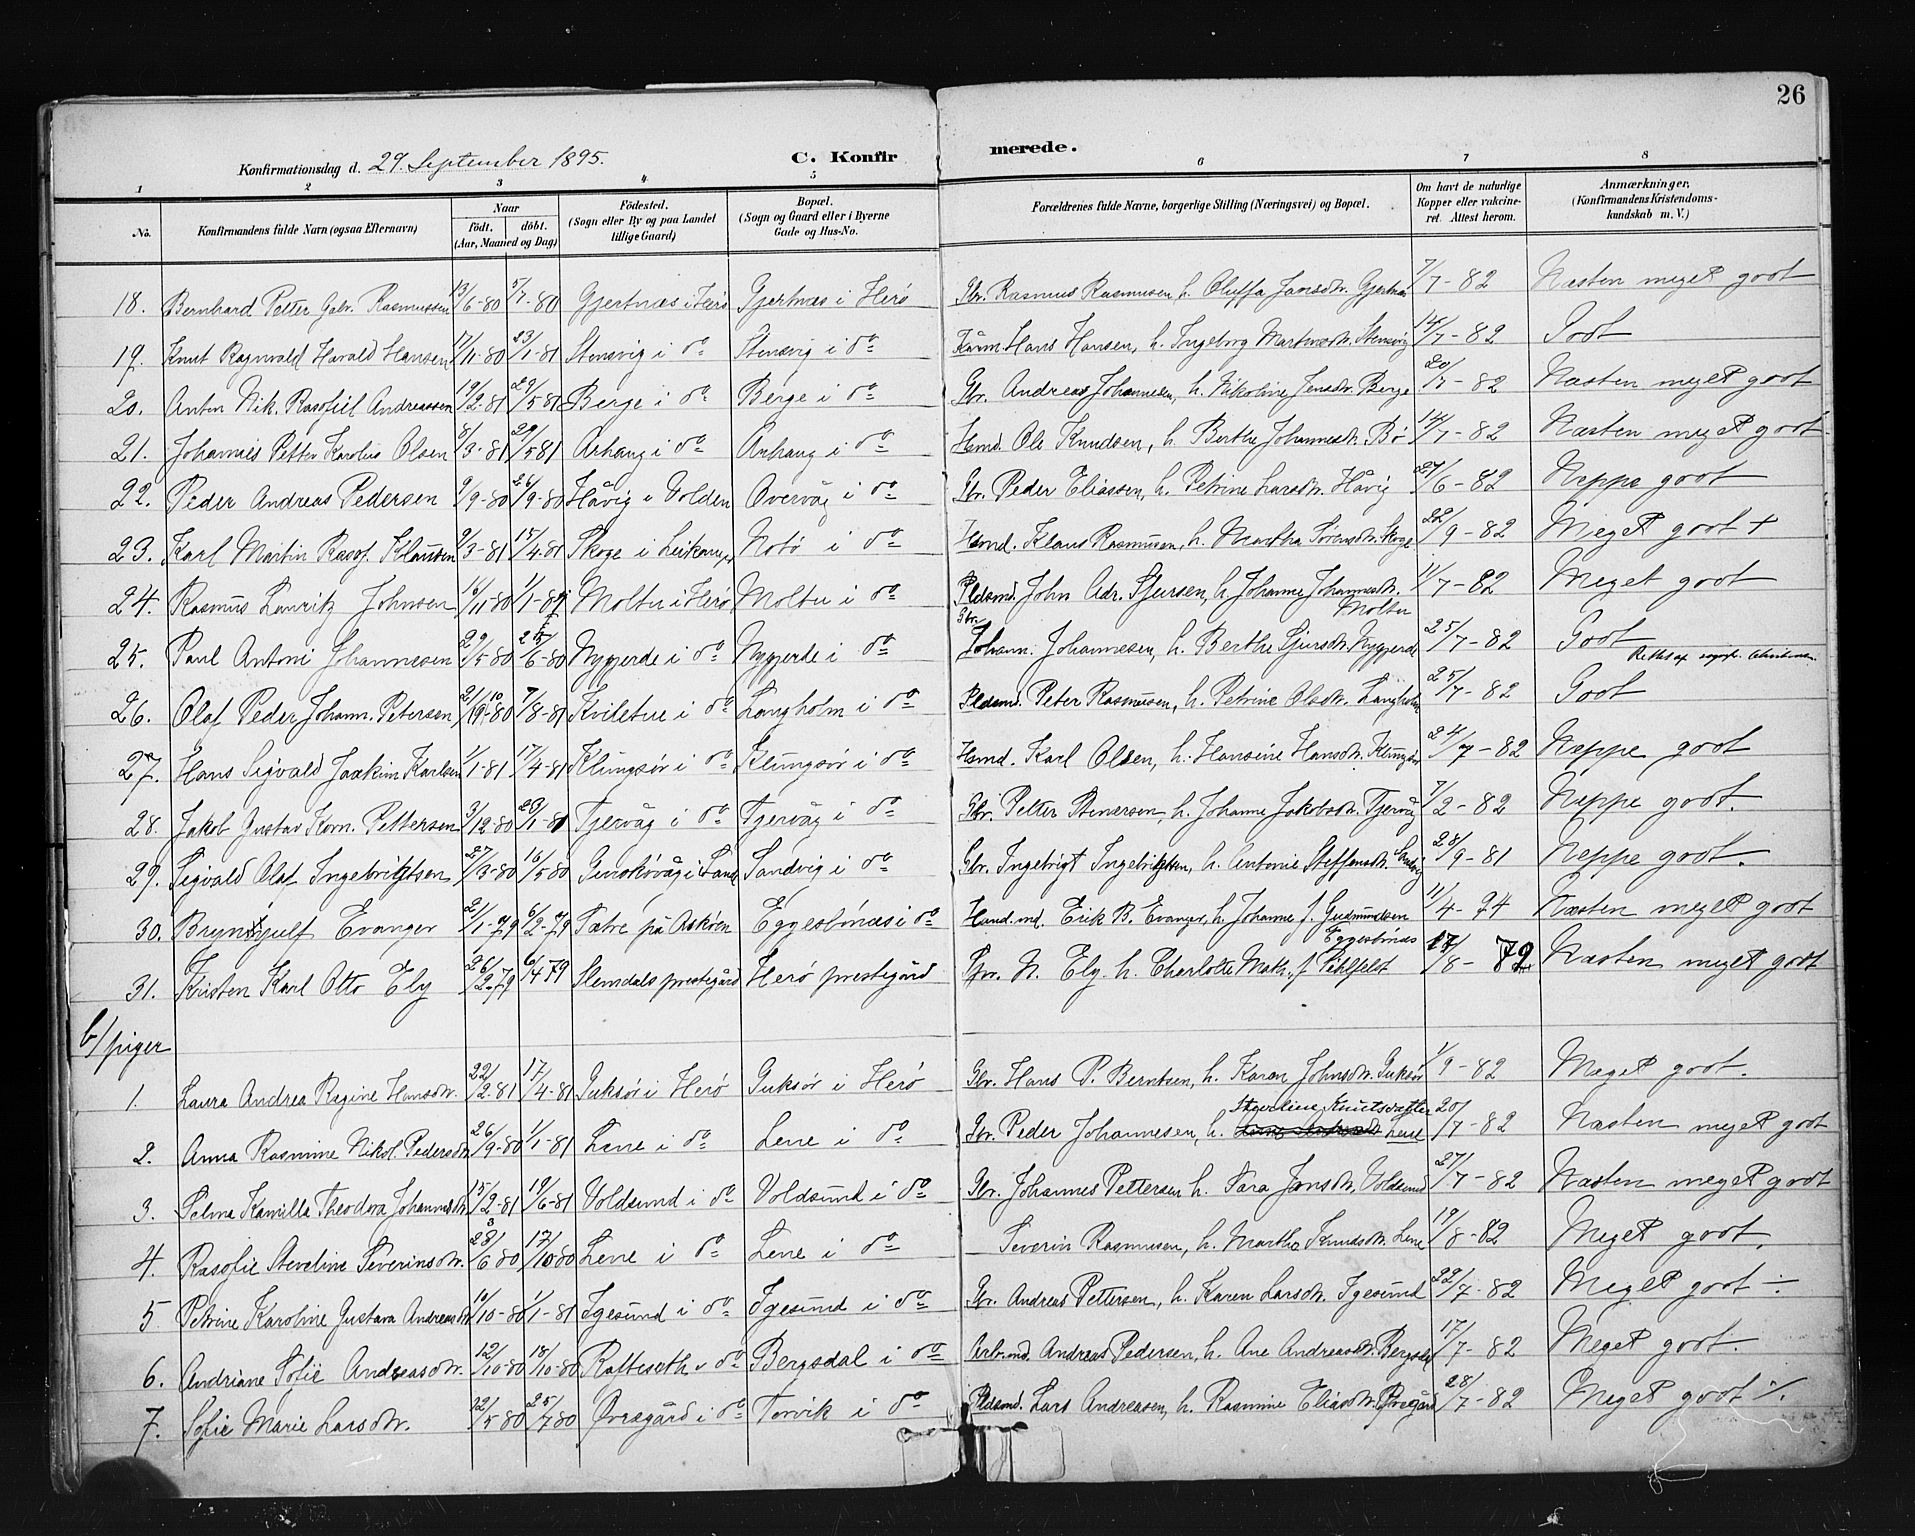 26
Konfirmationsdag d. 29. September 1895. C. Konfirmerede.
1 2 3 4 5 6 7 8
No. Konfirmandens fulde Navn (ogsaa Efternavn) Naar født. døbt. (Aar, Maaned og Dag) Fødested. (Sogn eller By og paa Landet tillige Gaard) Bopæl. (Sogn og Gaard eller i Byerne Gade og Hus-No. Forældrenes fulde Navne, borgerlige Stilling (Næringsvei) og Bopæl. Om havt de naturlige Kopper eller vakcineret. Attest herom. Anmærkninger. (Konfirmandens Kristendomskundskab m. V.)
18. Bernhard Petter Gabr. Rasmussen 13/6-80 5/7-80 Gjertnæs i Herö Gjertnæs i Herö Gbr. Rasmus Rasmussen, h. Oluffa Jansdtr. Gjertnæs 7/7-82 Næsten meget godt
19. Knut Ragnvald Harald Hansen 17/11-80 23/1-81 Stensvig i do Stensvig i do Kårm. Hans Hansen, h. Ingeborg Martinsdtr. Stensvig 14/7-82 Godt
20. Anton Nik. Rasofiel Andreassen 19/2-81 29/5-81 Berge i do Berge i do Gbr. Andreas Johannesen, h. Nikoline Jensdtr. Berge 20/7-82 Næsten meget godt
21. Johannes Petter Karolius Olsen 8/3-81 29/5-81 Arhaug i do Arhaug i do Hmd. Ole Knudsen, h. Berthe Johannesdtr. Bø 14/7-82 Næsten meget godt
22. Peder Andreas Pedersen 9/9-80 26/9-80 Håvig i Volden Overvåg i do Gbr. Peder Eliassen, h. Petrine Larsdtr. Håvig 27/6-82 Neppe godt
23. Karl Martin Rasof. Klausen 2/3-81 15/4-81 Skoge i Leikanger Notö i do Hmd. Klaus Rasmussen, h. Martha Sørensdtr. Skoge 22/9-82 Meget godt +
24. Rasmus Lauritz Johnsen 16/11-80 1/1-81 Moltu i Herö Moltu i do Pldsmd. John Adr. Sjursen, h. Johanne Johannesdtr. Moltu 11/7-82 Meget godt
25. Paul Antoni Johannesen 29/5-80 25/6-80 Nygjerde i do Nygjerde i do Gbr. Johann. Johannesen, h. Berthe Sjursdtr. Nygjerde 25/7-82 Godt
26. Olaf Peder Johann. Petersen 21/10-80 7/8-81 Kviletue i do Langholm i do Pldsmd. Peter Rasmussen, h. Petrine Olsdtr. Langholm 25/7-82 Godt
27. Hans Sigvald Joakim Karlsen 1/1-81 17/4-81 Klungsör i do Klungsör i do Hmd. Karl Olsen, h. Hansine Hansdtr. Klungsör 24/7-82 Neppe godt
28. Jakob Gustav Korn. Pettersen 3/12-80 23/1-81 Tjervåg i do Tjervåg i do Gbr. Petter Stenersen, h. Johanne Jakobsdtr. Tjervåg 7/2-82 Neppe godt.
29. Sigvald Olaf Ingebrigtsen 27/3-80 16/5-80 Sandvig i do Gbr. Ingebrigt Ingebrigtsen, h. Antonie Steffensdtr. Sandvig 28/9-81 Neppe godt.
30. Brynjulf Evanger 21/1-79 6/2-79 Sætre på Askøen Eggesbönæs i do Hand.md. Erik B. Evanger, h. Johanne f. Gudmundsen Eggesbönæs 11/4-94 Næsten meget godt
31. Kristen Karl Otto Ely 26/2-79 6/4 79 Slemdals prestegård Herö prestegård Spr. N. Ely, h. Charlotte Math. f. Pihlfeldt 17/8-79 Næsten meget godt
b/ piger
1. Laura Andrea Regine Hansdtr. 22/2-81 17/4-81 Gurksör i Herö Gurksör i Herö Gbr. Hans P. Berntsen, h. Karen Johnsdtr. Gurksör 1/9-82 Meget godt.
2. Anna Rasmine Nikol. Pedersdtr. 26/9-80 1/1-81 Lene i do Lene i do Gbr. Peder Johannesen, h. Steveline Knutsdatter Lene 20/7-82 Næsten meget godt
3. Selma Kamilla Theodora Johannesdtr. 15/2-81 19/6-81 Voldsund i do Voldsund i do Gbr. Johannes Pettersen h. Sara Jonsdtr. Voldsund 27/7-82 Næsten meget godt
4. Rasofie Steveline Severinsdtr. 23/6 80 17/10 80 Lene i do Lene i do Severin Rasmussen, h. Martha Knudsdtr. Lene 19/8-82 Meget godt.
5. Petrine Karoline Gustava Andreasdtr. 10/10-80 1/1-81 Igesund i do Igesund i do Gbr. Andreas Pettersen, h. Karen Larsdtr. Igesund 22/7-82 Meget godt ÷
6. Andriane Sofie Andreasdtr. 12/10-80 18/10-80 Rotteseth i do Bergsdal i do Arb.md. Andreas Pedersen, h. Ane Andreasdtr. Bergsdal 17/7-82 Meget godt.
7. Sofie Marie Larsdtr. 22/5 80 25/7 80 Øvregård i do Torvik i do Pldsmd. Lars Andreassen, h. Rasmine Eliasdtr. Øvregård 28/7-82 Meget godt ÷